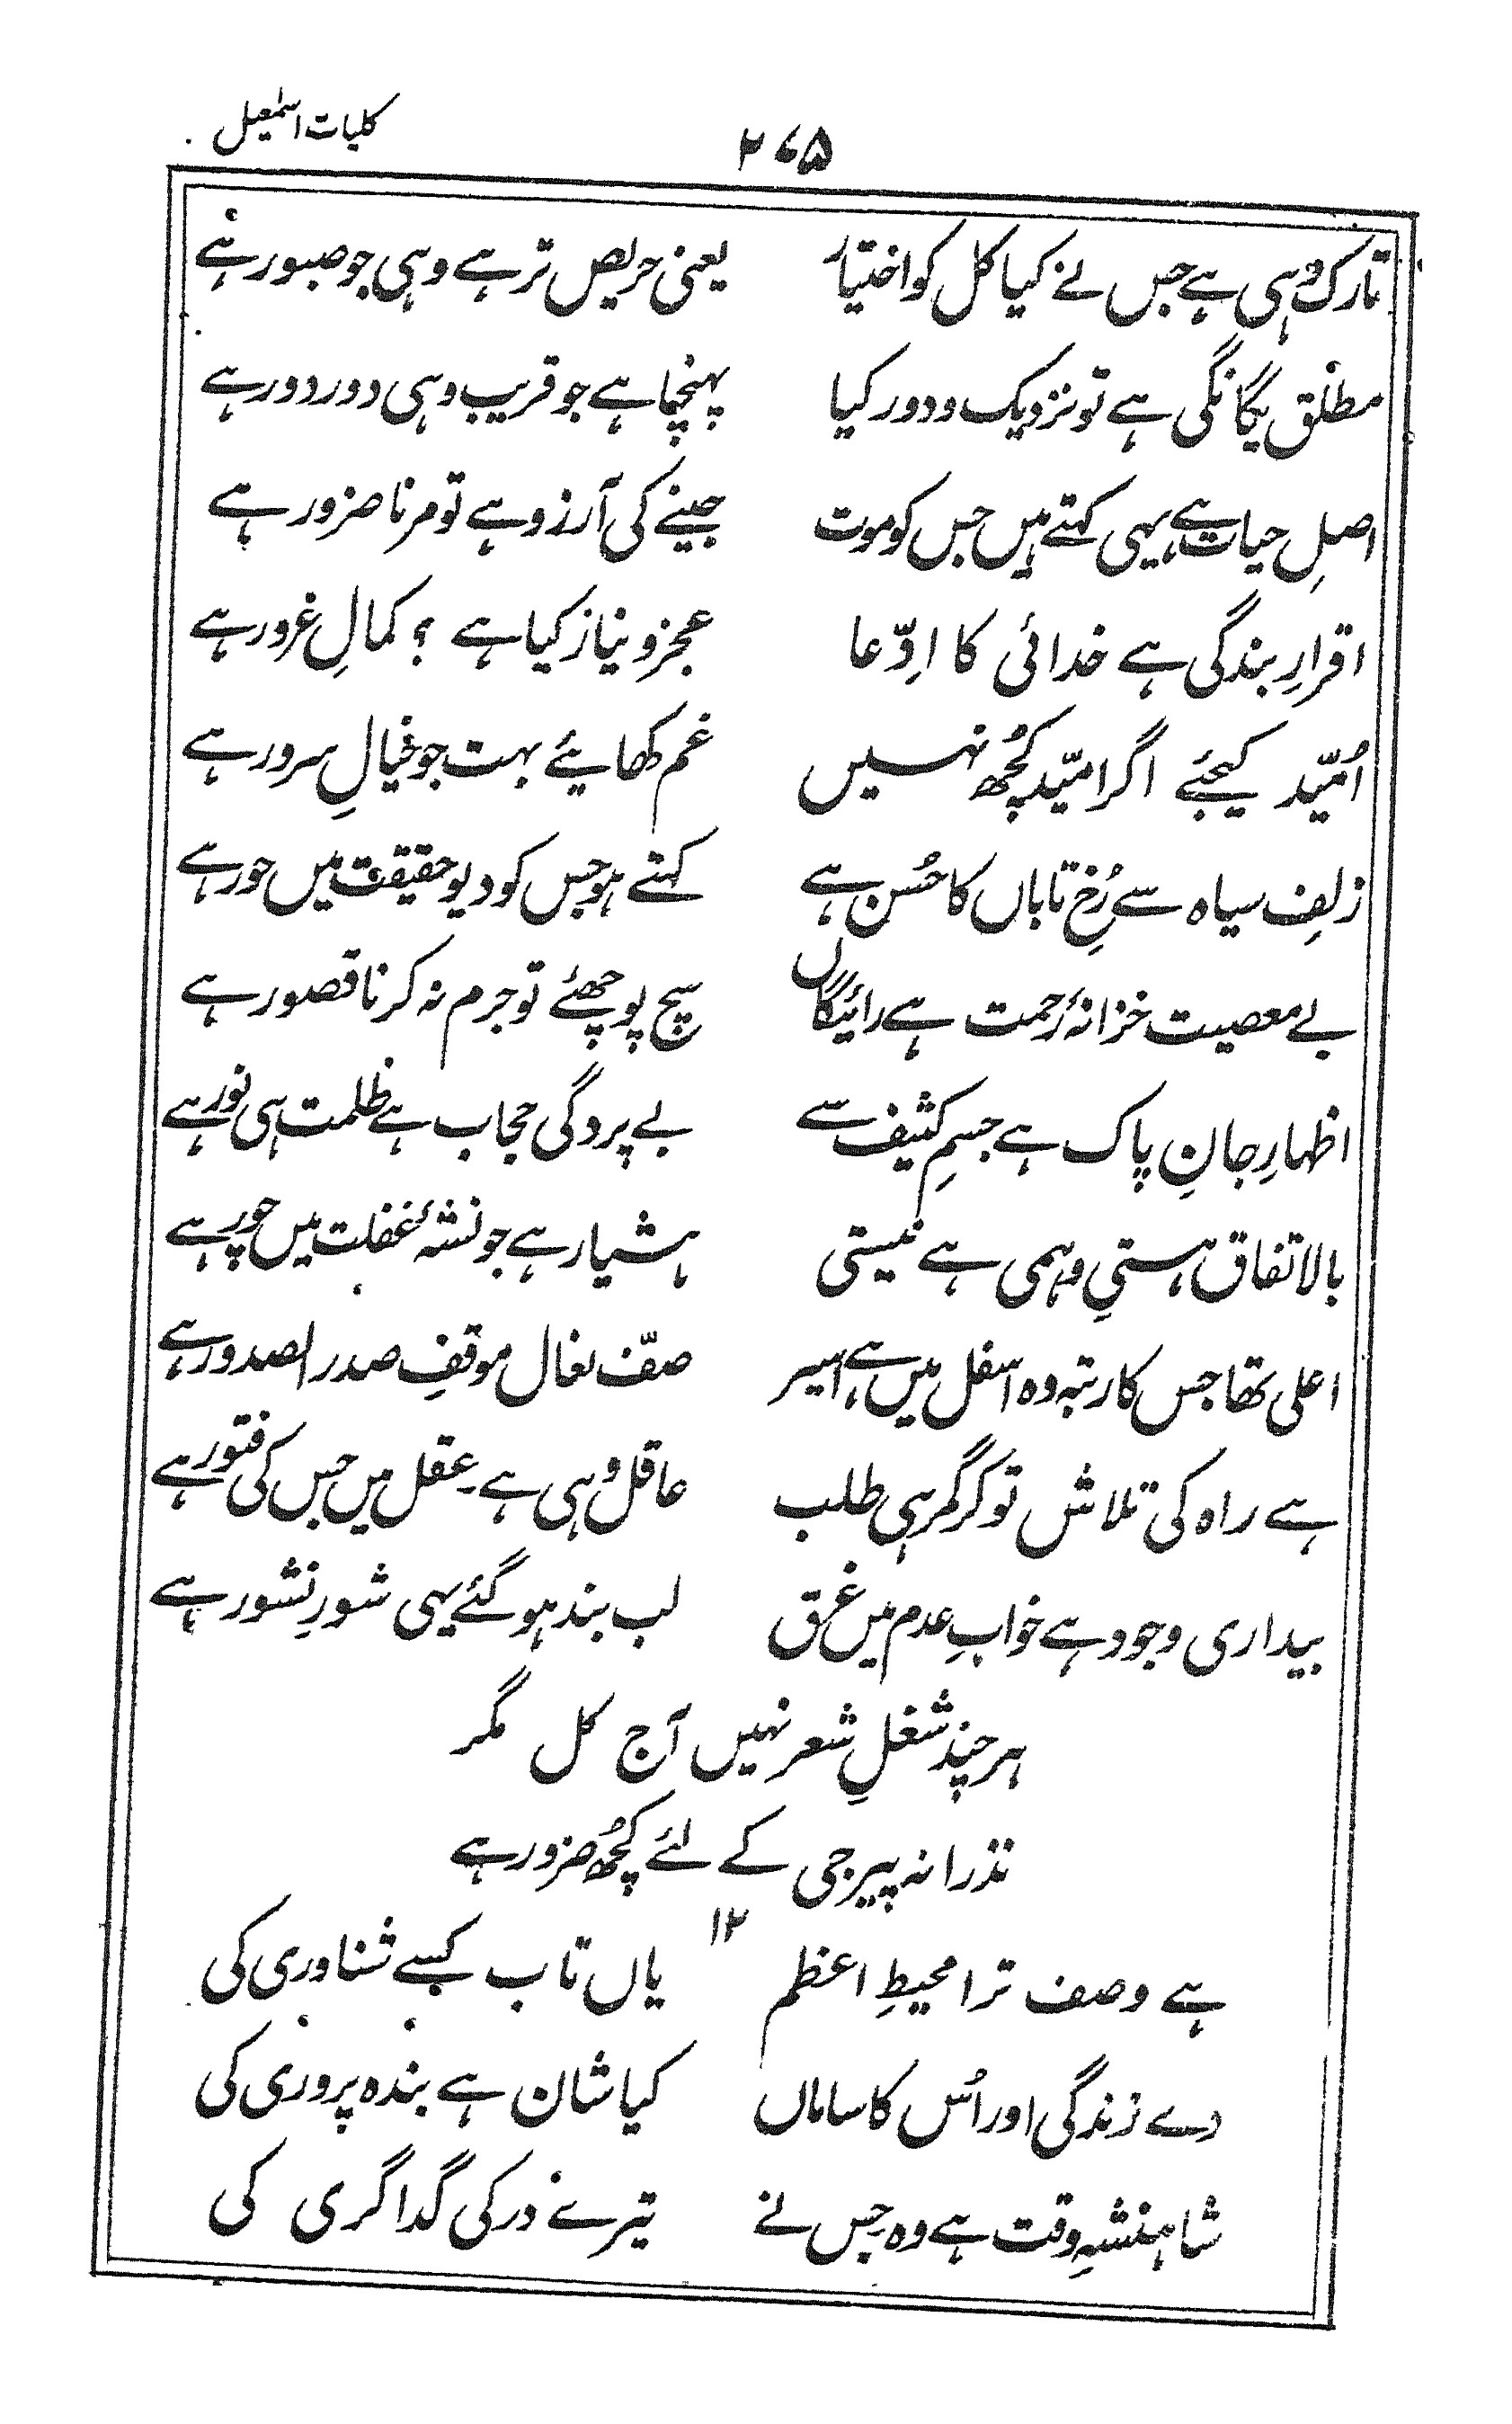 کلیات اسمٰعیل
۲۷۵
تارک وہی ہے جس نے کیا کل کو اختیار یعنی حریص تر ہے وہی جو صبور ہے
مطلق یگانگی ہے تو نزدیک و دور کیا پہنچا ہے جو قریب وہی دور دور ہے
اصلِ حیات ہے یہی کہتے ہیں جس کو موت جینے کی آرزو ہے تو مرنا ضرور ہے
اقرارِ بندگی ہے خدائی کا ادِّعا عجز و نیاز کیا ہے ؟ کمالِ غرور ہے
اُمّید کیجئے اگر امیّد کچُھ نہیں غم کھایئے بہت جو خیالِ سرور ہے
زلفِ سیاہ سے رُخِ تاباں کا حُسن ہے کہتے ہو جس کو دیو حقیقت میں حور ہے
بے معصیت خزانۂ رحمت ہے رائیگاں سچ پوچھئے تو جرم نہ کرنا قصور ہے
اظہارِ جانِ پاک ہے جسمِ کثیف سے بے پردگی حجاب ہے ظلمت ہی نور ہے
بالاتفاق ہستیِ وہمی ہے نیستی ہشیار ہے جو نشۂ غفلت میں چور ہے
اعلی تھا جس کا رتبہ وہ اسفل میں ہے اسیر صفّ نعال موقفِ صدر الصدور ہے
ہے راہ کی تلاش تو کر گمرہی طلب عاقل وہی ہے۔ عقل میں جس کی فتور ہے
بیداری وجود ہے خوابِ عدم میں غرق لب بند ہو گئے یہی شورِ نشور ہے
ہر چند شغلِ شعر نہیں آج کل مگر
نذرانہ پیر جی کے لئے کچُھ ضرور ہے
۱۲
ہے وصف ترا محیطِ اعظم یاں تاب کسے شناوری کی
دے زندگی اور اُس کا ساماں کیا شان ہے بندہ پروری کی
شاہنشہِ وقت ہے وہ جس نے تیرے در کی گداگری کی